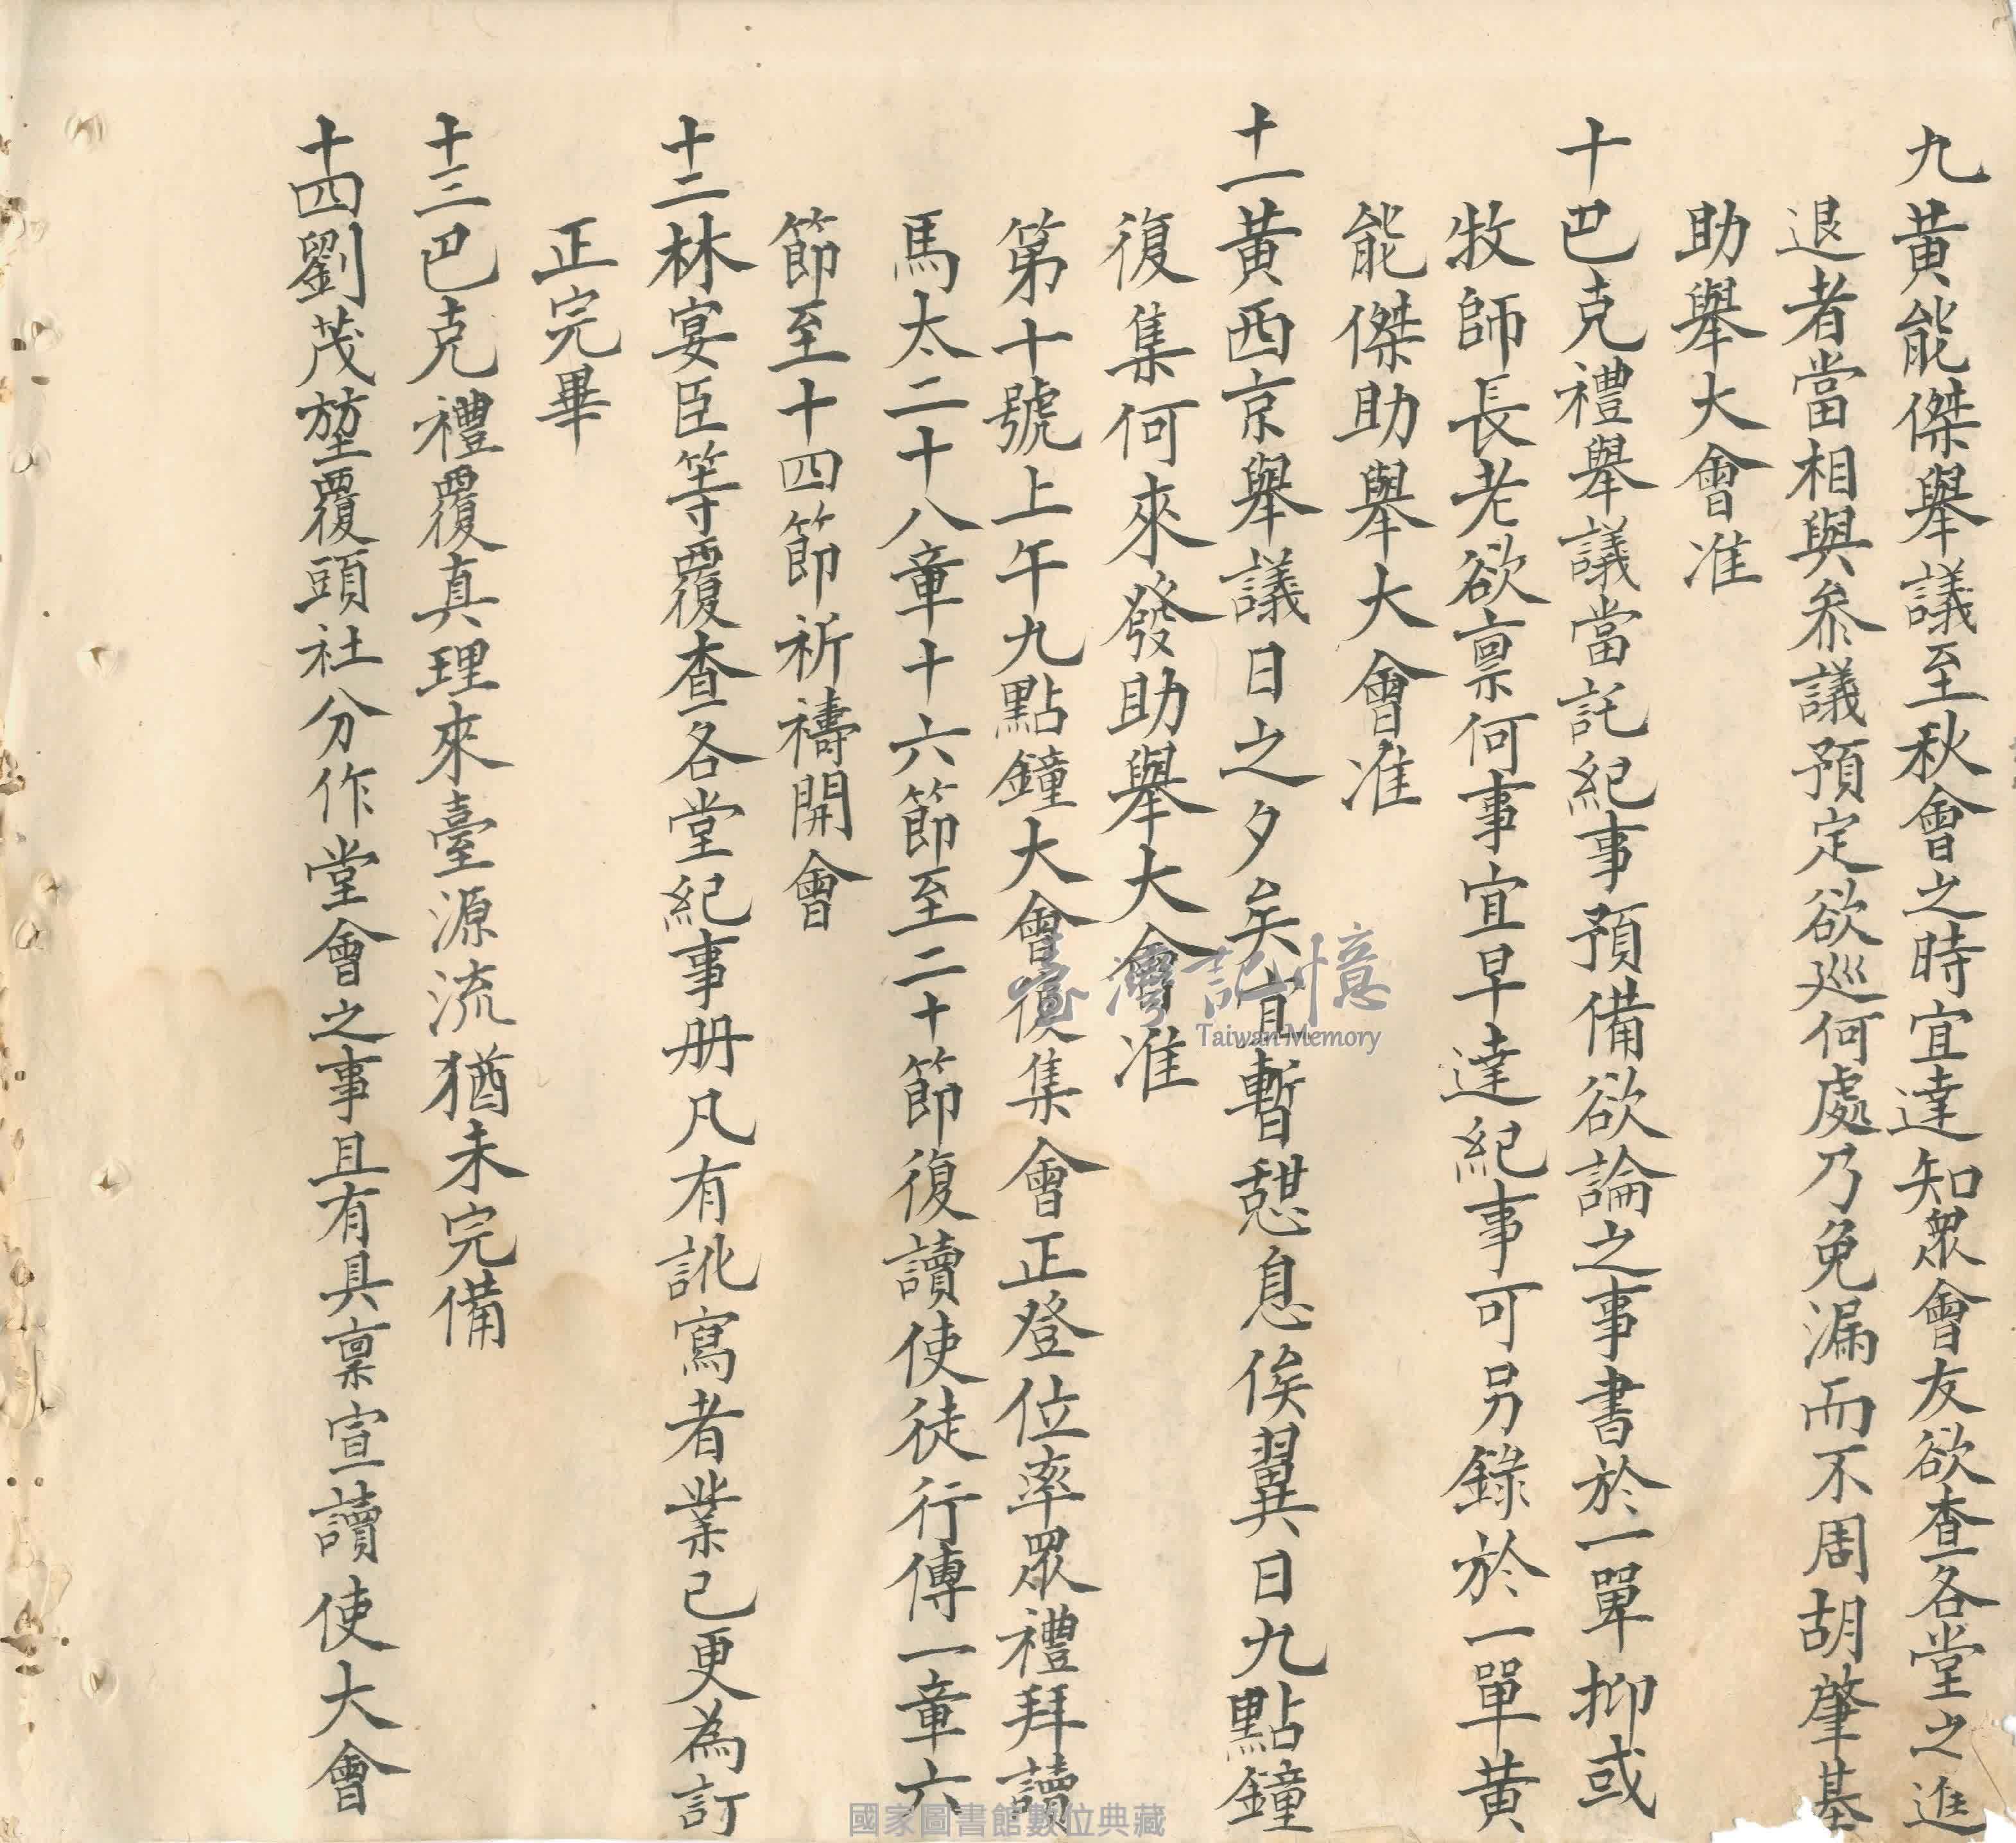 九黃能傑舉議至秋會之時宜達知眾會友欲查各堂之進
退者當相與叅議預定欲巡何處乃免漏而不周胡肇基
助舉大會准
十巴克禮舉議當託紀事預備欲論之事書於一單抑或
牧師長老欲禀何事宜早達紀事可另錄於一單黃
能傑助舉大會准
十一黃西京舉議日之夕矣宜暫憩息俟翼日九點鐘
復集何來發助舉大會准
第十號上午九點鐘大會復集會正登位率眾禮拜讀
馬太二十八章十六節至二十節復讀使徒行傳一章六
節至十四節祈禱開會
十二林宴臣等覆查各堂紀事册凡有訛寫者業已更為訂
正完畢
十三巴克禮覆真理來臺源流猶未完備
十四劉茂堃覆頭社分作堂會之事且有具禀宣讀使大會
臺灣記憶
Taiwan Memory
國家圖書館數位典藏